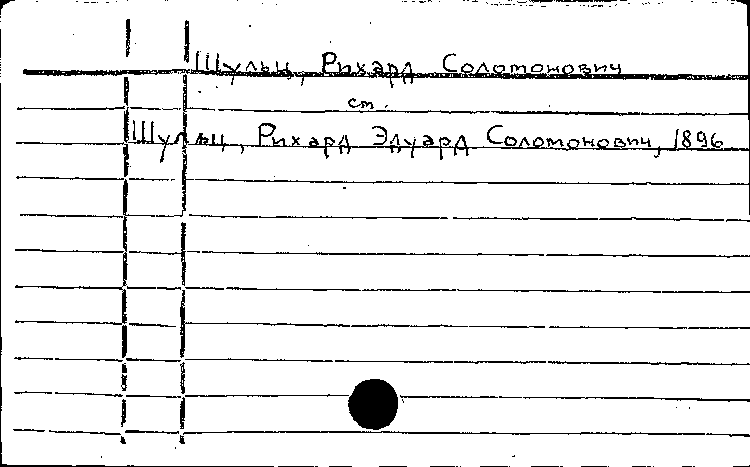 Шульц, Рихард Соломонович
см.
Шульц, Рихард Эдуард Соломонович, 1896